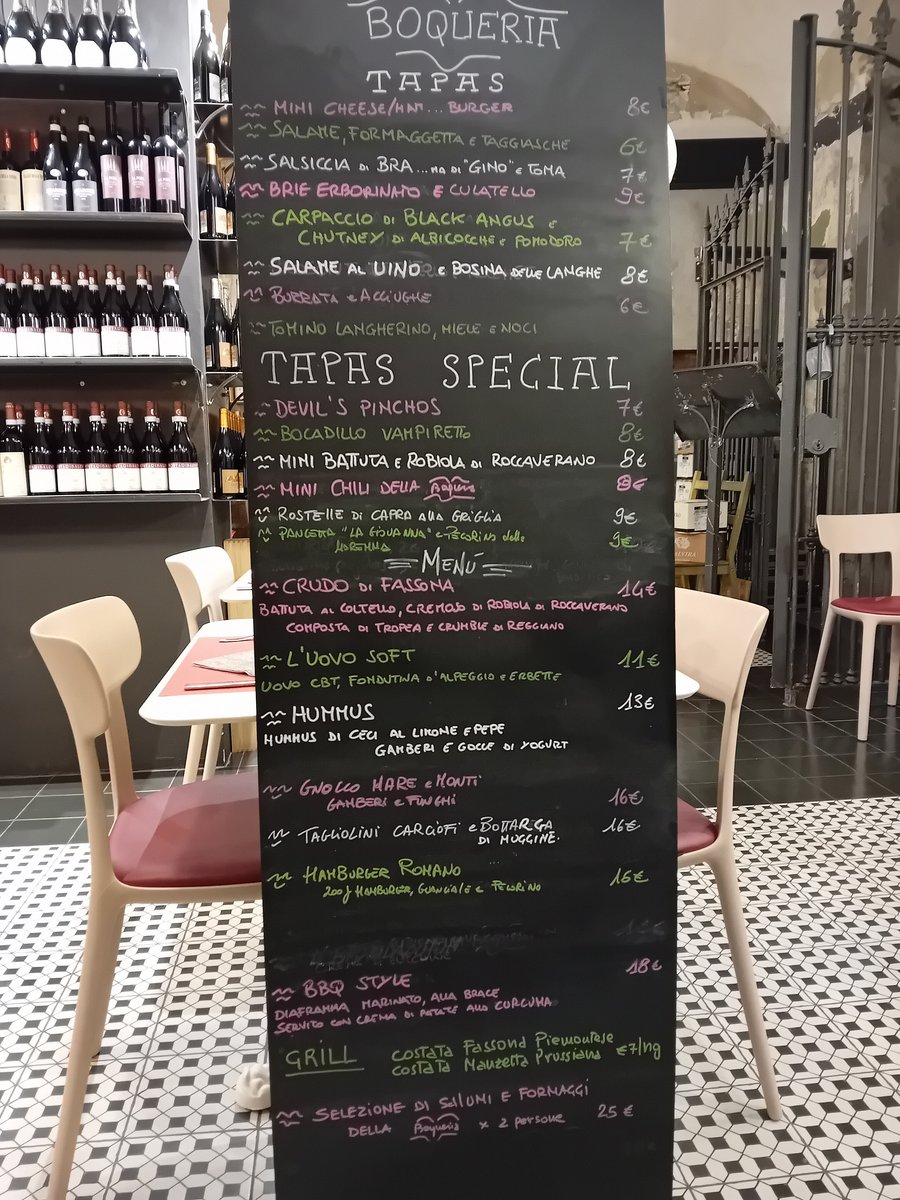 BOQUERIA
TAPAS
MINI CHEESE/HAM... BURGER 8€
SALAME, FORMAGGETTA E TAGGIASCHE 6€
SALSICCIA DI BRA ...MA DI "GINO" E TOMA 7€
BRIE ERBORINATO E CULATELLO 9€
CARPACCIO DI BLACK ANGUS E
CHUTNEY DI ALBICOCCHE E POMODORO 7€
SALAME AL VINO E BOSINA DELLE LANGHE 8€
BURRATA E ACCIUGHE 6€
TOMINO LANGHERINO, MIELE E NOCI
TAPAS SPECIAL
DEVIL'S PINCHOS 7€
BOCADILLO VAMPIRETTO 8€
MINI BATTUTA E ROBIOLA DI ROCCAVERANO 8€
MINI CHILI DELLA Boqueria 8€
ROSTELLE DI CAPRA ALLA GRIGLIA 9€
PANCETTA "LA GIOVANNA" E PECORINO della 9€
MAREMMA
MENÚ
CRUDO DI FASSONA 14€
BATTUTA AL COLTELLO, CREMOSO DI ROBIOLA DI ROCCAVERANO
COMPOSTA DI TROPEA E CRUMBLE DI REGGIANO
L'UOVO SOFT 11€
UOVO CBT, FONDUTINA D'ALPEGGIO E ERBETTE
HUMMUS 13€
HUMMUS DI CECI AL LIMONE E PEPE
GAMBERI E GOCCE DI YOGURT
GNOCCO MARE E MONTI
GAMBERI E FUNGHI 16€
TAGLIOLINI CARCIOFI E BOTTARGA 16€
DI MUGGINE.
HAMBURGER ROMANO 16€
200g HAMBURGER, GUANCIALE E PECORINO
BBQ STYLE 18€
DIAFRAMMA MARINATO, ALLA BRACE
SERVITO CON CREMA DI PATATE ALLA CURCUMA
GRILL COSTATA Fassona Piemontese
COSTATA Manzetta Prussiana €7/hg
SELEZIONE DI SALUMI E FORMAGGI
DELLA Boqueria x 2 persone 25€